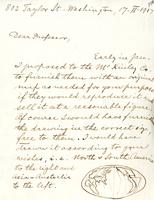 802 Taylor St. Washington, 17-II-19
Dear Professor,
Early in Jan.
I proposed to the McKinley Co
to furnish them with an original
map as needed for your purpose
if they would produce and
sell it at a reasonable figure.
Of course I would have furnished
the drawing in the correct size
free to them. I would have
drawn it according to your
wishes, i.e. North & South America
to the right and
Asia-Australia
to the left.